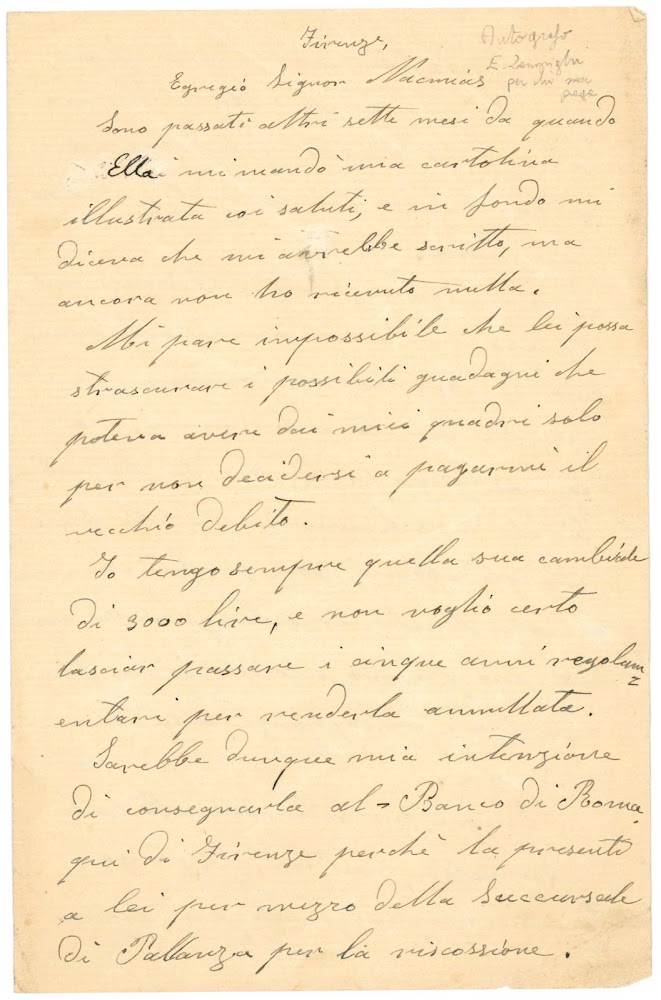 Firenze,
Autografo
E. Zampighi
per chi non
paga
Egregio Signor Nacmias
Sono passati altri sette mesi da quando
Ella mi mandò mia cartolina
illustrata coi saluti, e in fondo mi
diceva che mi avrebbe scritto, ma
ancora non ho ricevuto nulla.
Mi pare impossibile che lei possa
strascurare i possibili guadagni che
poteva avere dai miei quadri solo
per non decidersi a pagarmi il
vecchio debito.
Io tengo sempre quella sua cambiale
di 3000 lire, e non voglio certo
lasciar passare i cinque anni regolam
entari per renderla annullata.
Sarebbe dunque mia intenzione
di consegnarla al Banco di Roma,
qui di Firenze perchè la presenti
a lei per mezzo della Succursale
di Pallanza per la riscossione.